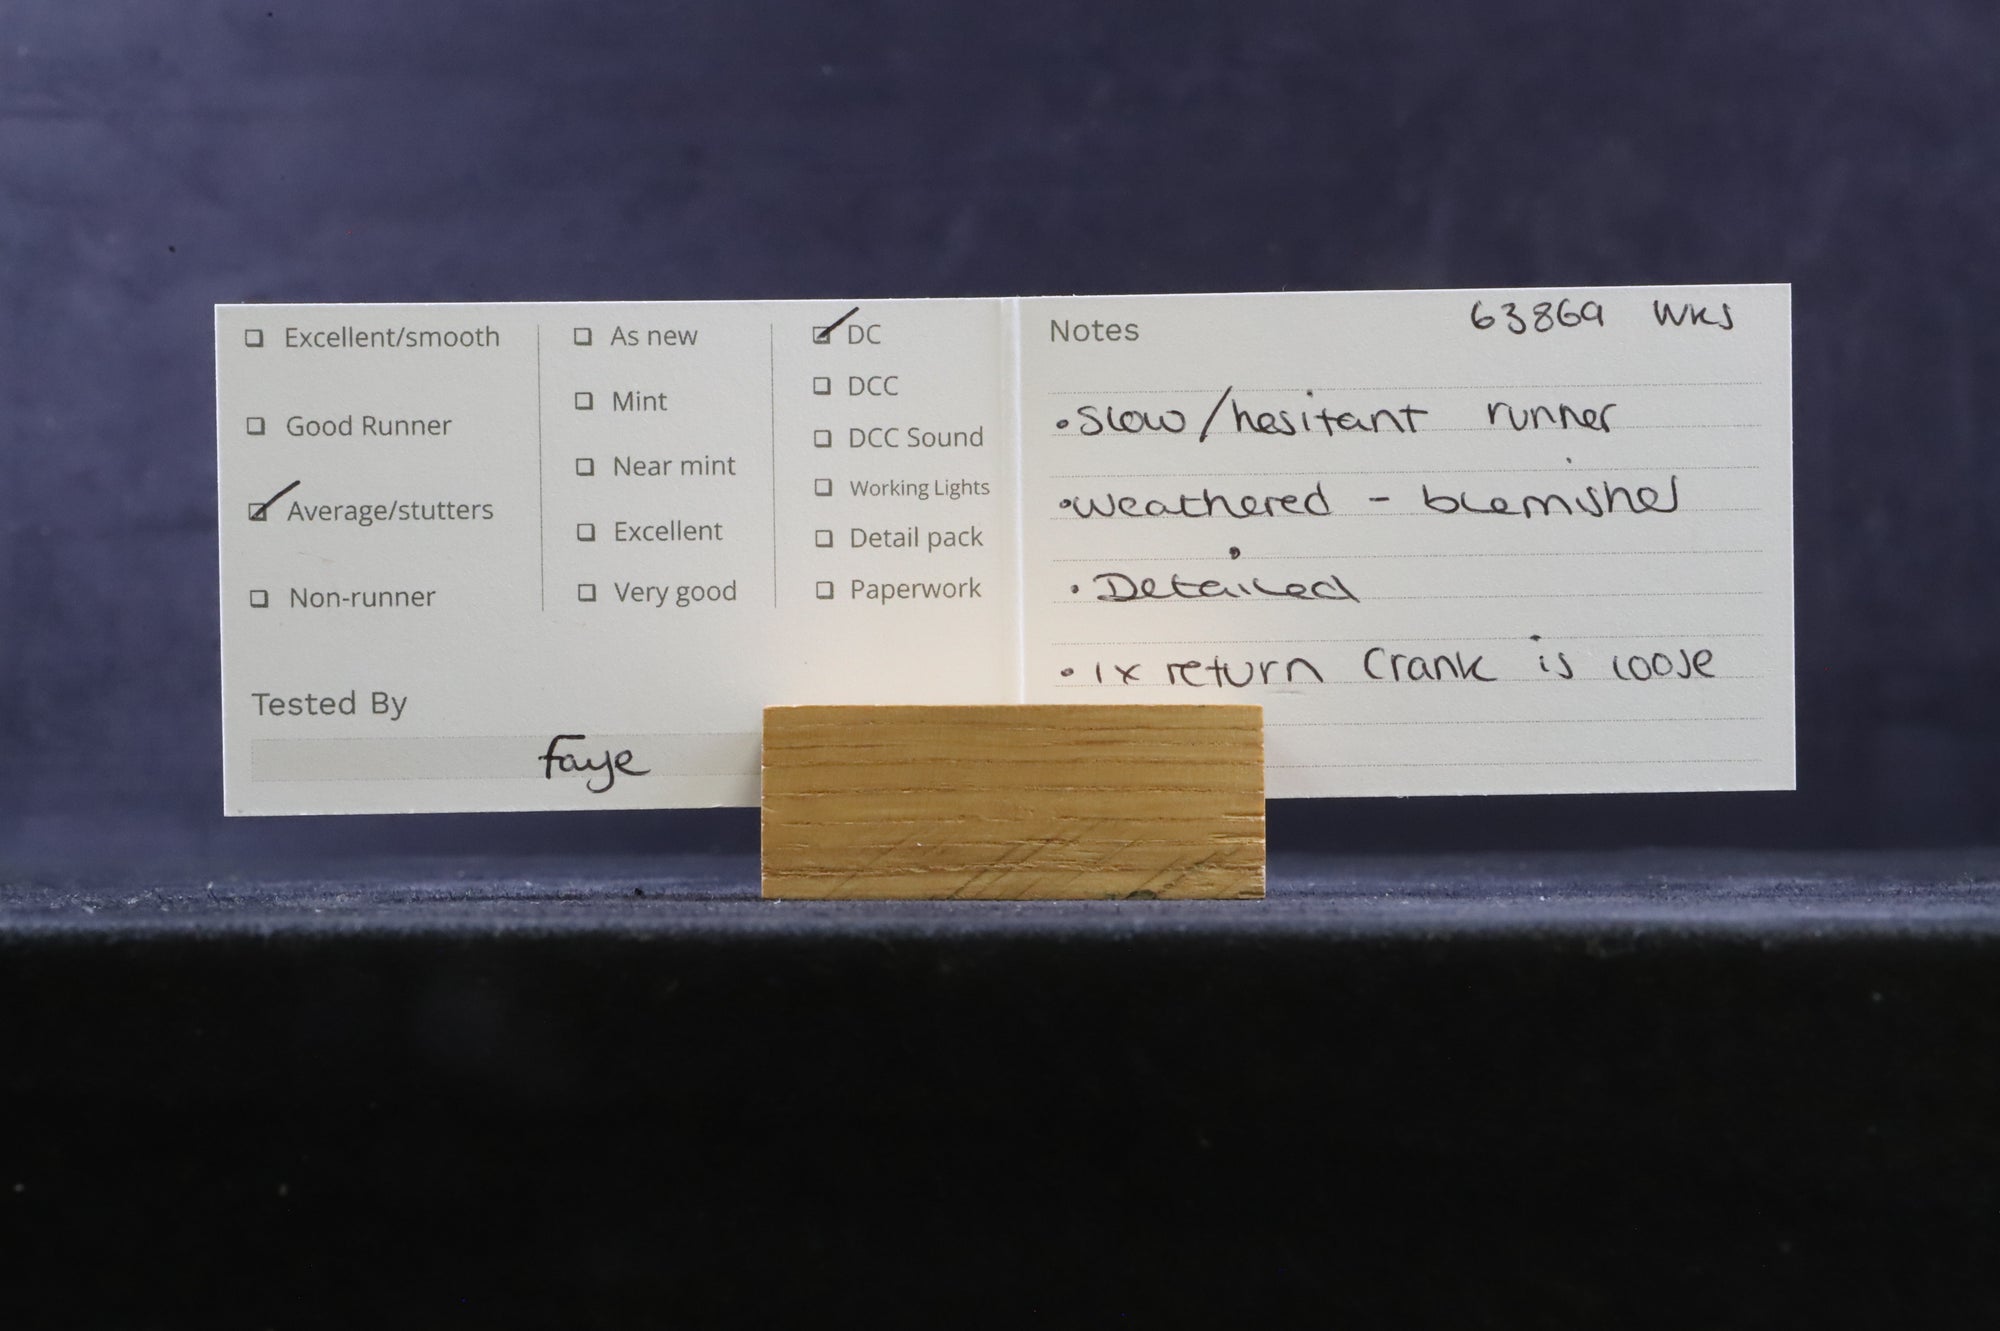 ☐ Excellent/smooth
☐ Good Runner
☑ Average/stutters
☐ Non-runner
☐ As new
☐ Mint
☐ Near mint
☐ Excellent
☐ Very good
☑ DC
☐ DCC
☐ DCC Sound
☐ Working Lights
☐ Detail pack
☐ Paperwork
Tested By
faye
Notes 63869 WKS
• Slow/hesitant runner
• weathered - blemishes
• Detailed
• 1x return crank is loose